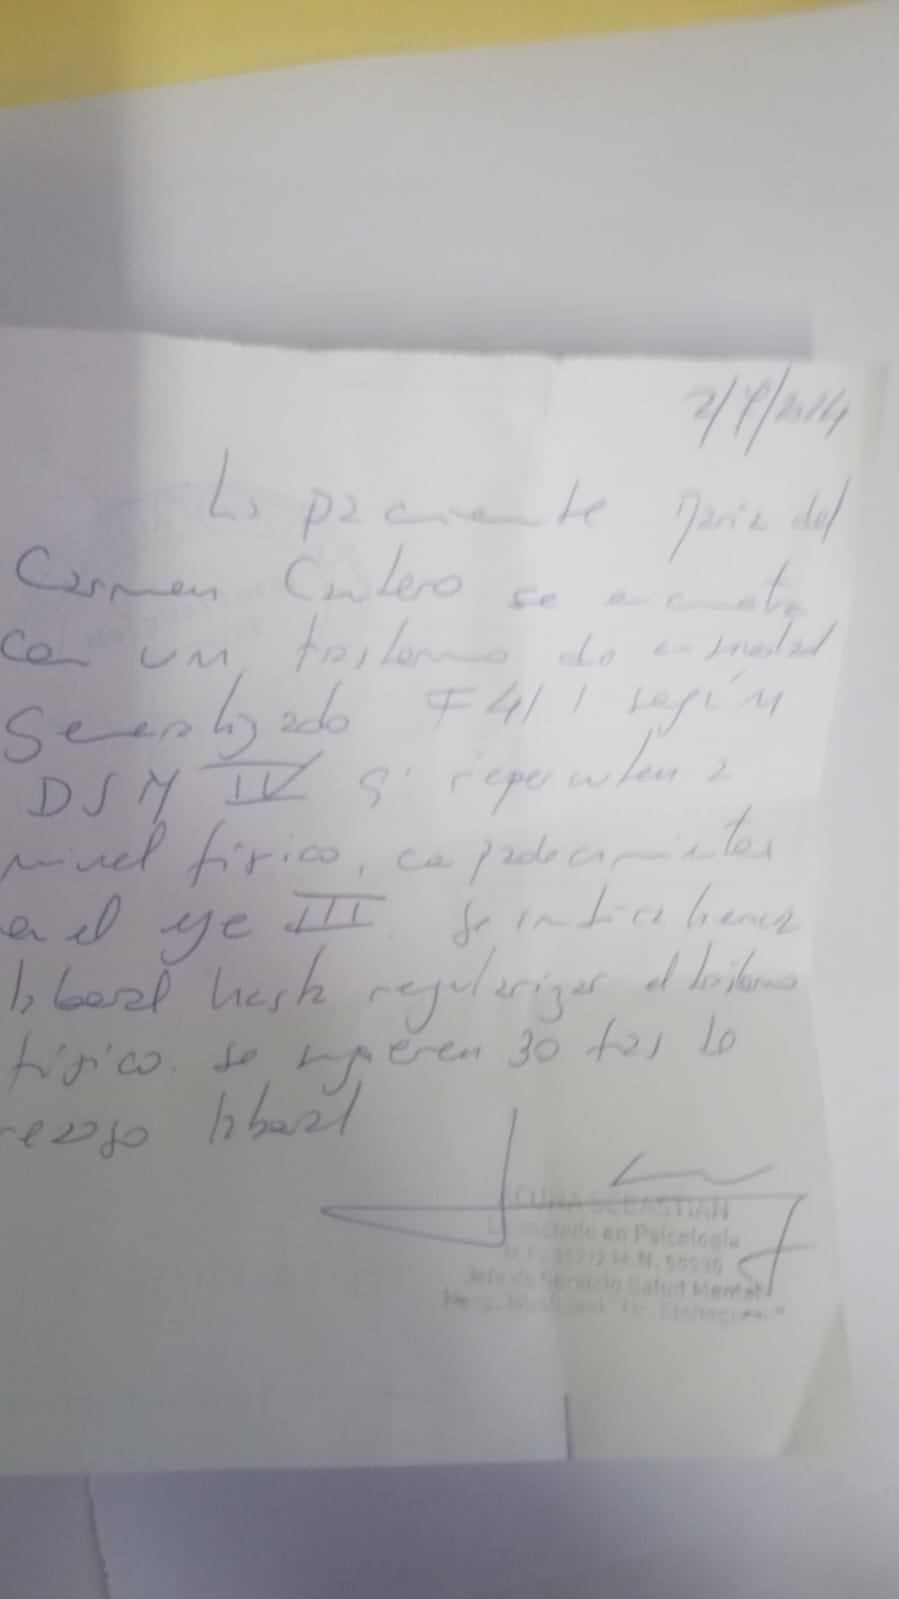 2/7/2024
La paciente Maria del
Carmen Cantero se encuentra
con un trastorno de ansiedad
Generalizado F41.1 según
DSM IV q' repercuten a
nivel físico, co padecimientos
en el eje III. Se indica licencia
laboral hasta regularizar el trastorno
físico. Se sugieren 30 días de
reposo laboral
CUÑA SEBASTIAN
Licenciado en Psicología
M.N.
Jefe de Servicio Salud Mental
Hosp. Municipal "Dr.